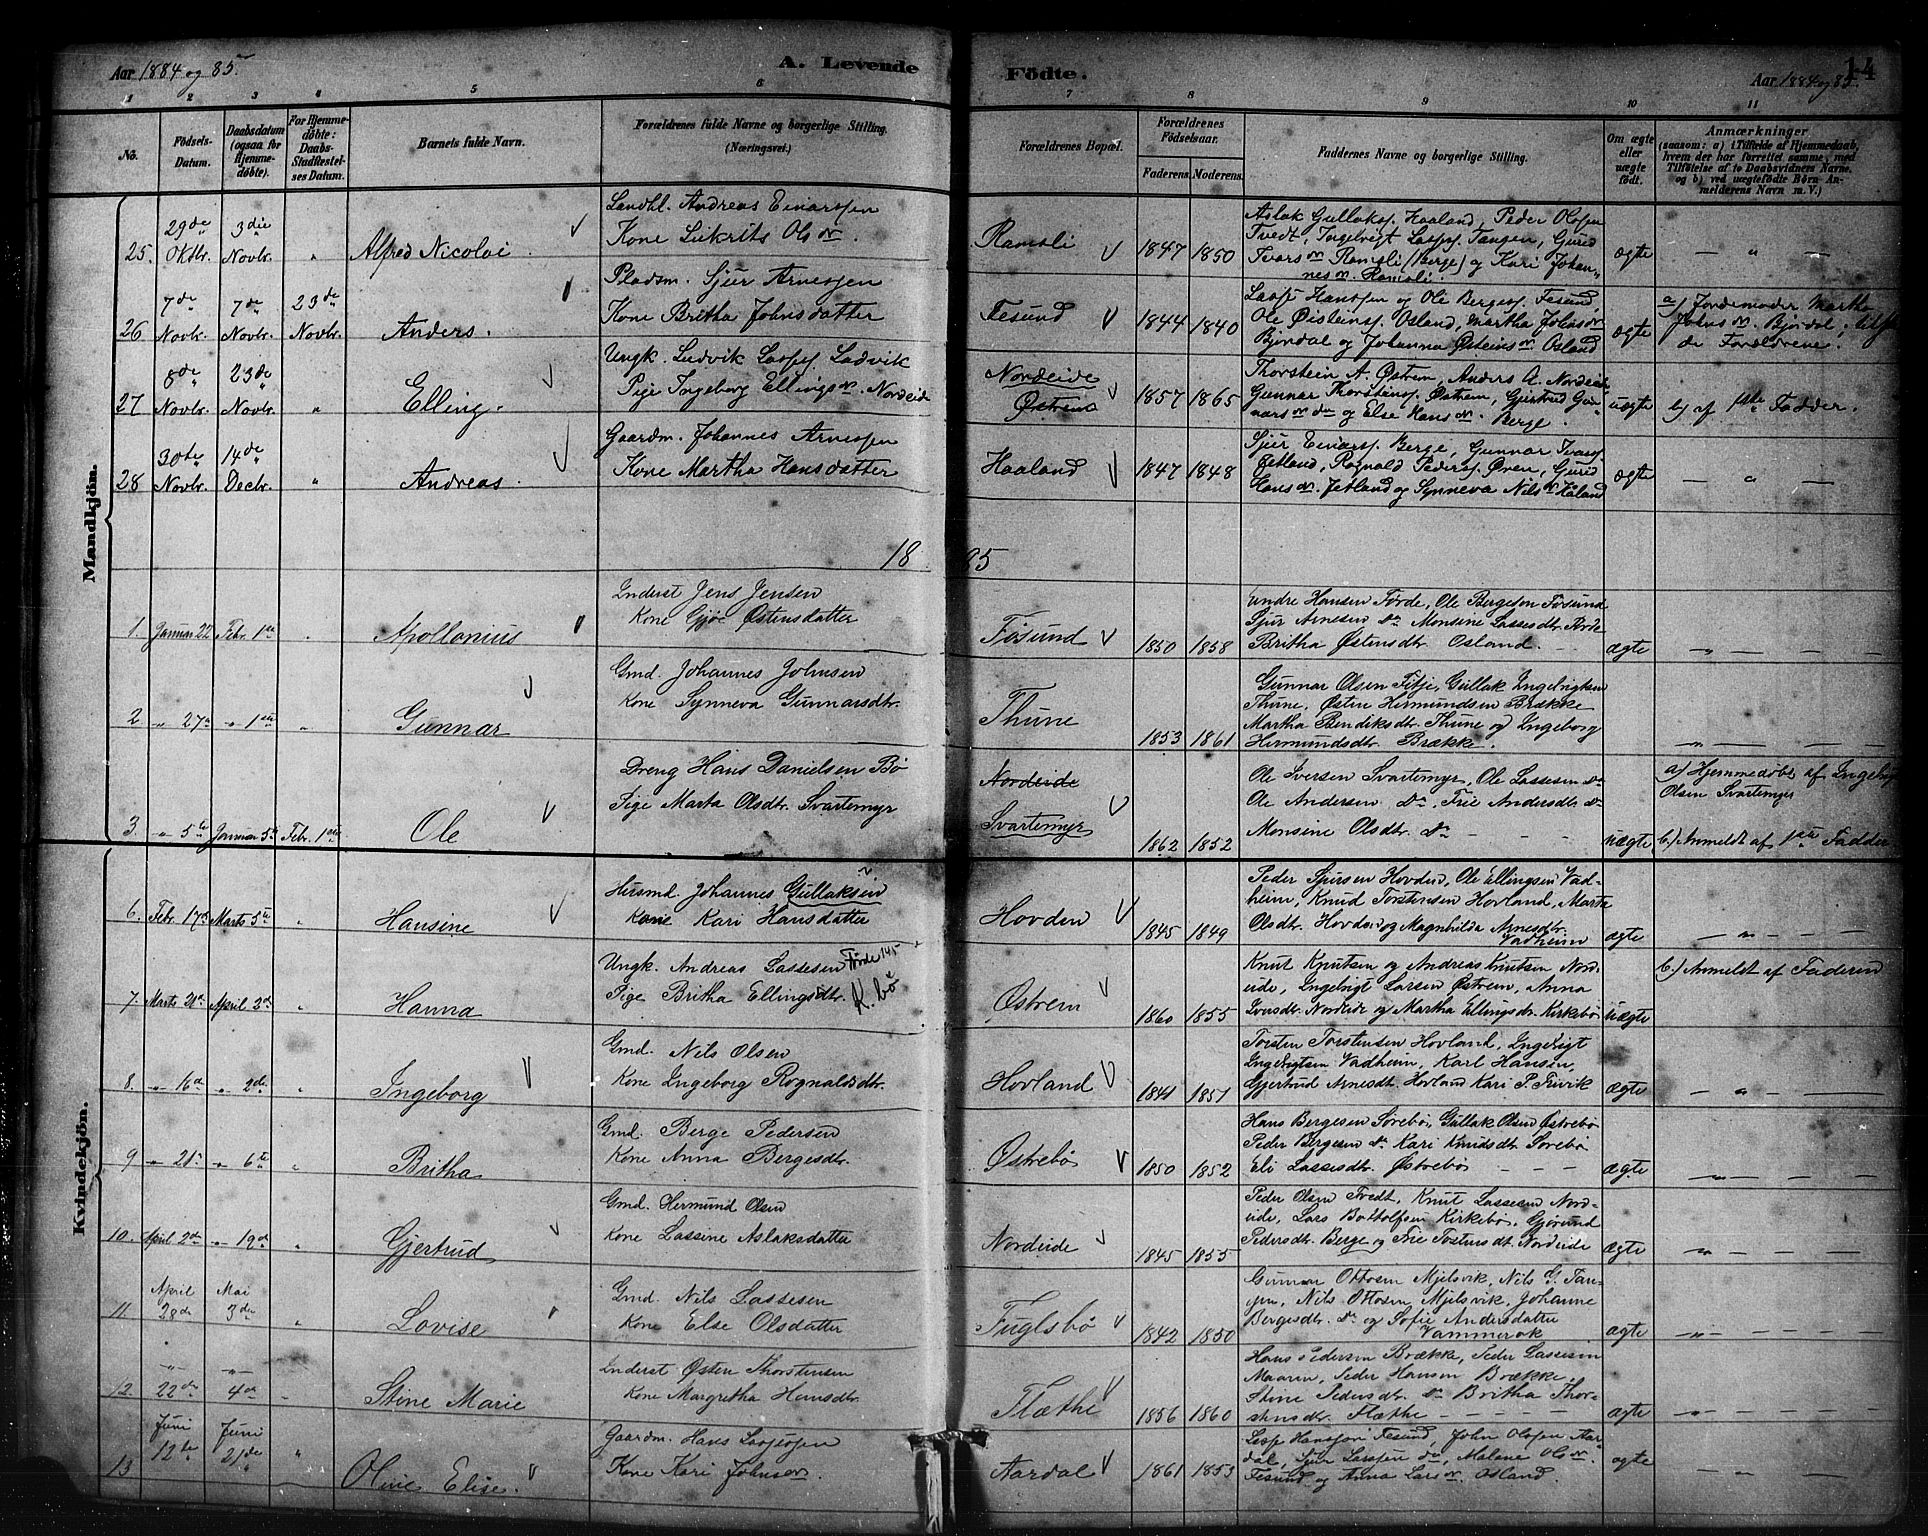 Aar 1884 og 85. A. Levende Födte. Aar 1884 og 85. 14
1 2 3 4 5 6 7 8 9 10 11
No. Födsels-Datum. Daabsdatum (ogsaa for Hjemme-döbte). For Hjemme-döbte: Daabs-Stadfæstel-ses Datum. Barnets fulde Navn. Forældrenes fulde Navne og borgerlige Stilling. (Næringsvei.) Forældrenes Bopæl. Forældrenes Födselsaar. Faderens. Moderens. Faddernes Navne og borgerlige Stilling. Om ægte eller uægte födt. Anmærkninger (saasom: a) i Tilfælde af Hjemmedaab, hvem der har forrettet samme, med Tilföielse af to Daabsvidners Navne, og b) ved uægtefödte Börn An-melderens Navn m. V.)
Mandkjön.
25. 29de Oktbr. 3die Novbr. " Alfred Nicolai. Landhl. Andreas Einarssen Kone Lukrits Olsdr. Ramsli 1847 1850 Aslak Gullaks. Haaland, Peder Olsen Tvedt, Ingebrigt Lasses. Tangen, Gurid Ivarsdr. Ramsli (Berge) og Kari Johan-nesdr. Ramsli. ægte — " —
26 7de Novbr. 7de Novbr. 23de Novbr. Anders. Pladsm. Sjur Arnessen Kone Britha Johnsdatter Fesund 1844 1840 Lasse Hanssen og Ole Berges. Fesund Ole Øisteins. Osland, Martha Johnsdr. Bjordal og Johanna Østeinsdr. Osland ægte a) Jordemoder Martha Johnsdr. Bjordal, de Forældrene.
27 8de Novbr. 23de Novbr. " Elling. Ungk. Ludvik Lasses. Ladvik Pige Ingeborg Ellingsdr. Nordeide Nordeide Østrem 1857 1865 Thorstein A. Østrem, Anders A. Nordeide Gunnar Thorsteins. Østrem, Gjertrud Gun-narsdr. do og Else Hansdr. Berge. uægte b) af 1ste Fadder.
28 30te Novbr. 14de Decbr. " Andreas. Gaardm. Johannes Arnessen Kone Martha Hansdatter Haaland 1847 1848 Sjur Einars. Berge, Gunnar Ivars. Jetland, Rognald Peders. Øren, Gurid Hansdr. Jetland og Synneva Nilsdr. Håland ægte — " —
1885
1. Januar 22 Febr. 1ste " Apollonius Inderst Jens Jensen Kone Gjøe Østensdatter Fösund 1850 1858 Endre Hansen Förde, Ole Bergeson Fösund Sjur Arnesen do Monsine Lassesdtr. Förde Britha Østensdtr. Osland. — ægte " — —
2 " 27de " 1ste " Gunnar Gmd. Johannes Johnsen Kone Synneva Gunnarsdtr. Thune 1853 1861 Gunnar Olsen Fitje, Gullak Ingebrigtsen Thune, Østen Hermundsen Brække Martha Bendiksdtr. Thune og Ingeborg Hermundsdtr. Brække. " — — —
3. " 5te Januar 5te Febr. 1ste Ole Dreng Hans Danielsen Bö Pige Marta Olsdtr. Svartemyr Nordeide Svartemyr 1862 1852 Ole Iversen Svartemyr, Ole Lassesen do Ole Andersen do, Frie Andersdtr. do Monsine Olsdtr. do — — uægte a) Hjemmedöbt af Ingebrigt Olsen Svartemyr b.) Anmeldt af 1ste Fadder
Kvindekjön.
6. Febr. 17de Marts 5te " Hansine Husmd. Johannes Gullaksen Kone Kari Hansdatter Hovden 1845 1849 Peder Sjursen Hovden, Ole Ellingsen Vad-heim, Knud Torstensen Hovland, Marta Olsdtr. Hovden og Magnhilda Arnesdtr. Vadheim ægte — " — —
7. Marts 21de April 2de " Hanna Ungk. Andreas Lassesen Förde 145 Pige Britha Ellingsdtr. K.bö Østrem 1860 1855 Knut Knutsen og Andreas Knutsen Nord-eide, Ingebrigt Larsen Østrem, Anna Iversdtr. Nordeide og Martha Ellingsdtr. Kirkebö uægte b.) Anmeldt af Faderen
8. " 16de " 2de " Ingeborg Gmd. Nils Olsen Kone Ingeborg Rognaldsdtr. Hovland 1841 1851 Torsten Torstensen Hovland, Ingebrigt Ingebrigtsen Vadheim, Karl Hansen, Gjertrud Arnesdtr. Hovland Kari P. Truvik ægte — " — —
9 " 21de " 6te " Britha Gmd. Berge Pedersen Kone Anna Bergesdtr. Østrebö 1850 1852 Hans Bergesen Sörebö, Gullak Olsen Østrebö Peder Bergesen do Kari Knudsdtr. Sörebö Eli Lassesdtr. Østrebö — — — ægte — " — —
10. April 2de " 19de " Gjertrud Gmd. Hermund Olsen Kone Lassine Aslaksdatter Nordeide 1845 1855 Peder Olsen Tvedt, Knut Lassesen Nord-eide, Lars Bottolfsen Kirkebö, Gjörund Pedersdtr. Berge og Frie Tostensdt. Nordeide ægte " — — —
11. April 28de Mai 3de " Lovise Gmd. Nils Lassesen Kone Else Olsdatter Fuglsbö 1842 1850 Gunnar Ottosen Mjelsvik, Nils G. Tan-gen, Nils Ottosen Mjelsvik, Johanne Bergesdtr. do og Sofie Andersdatter ægte " — — —
12. " 22de " 4de " Stine Marie Inderst Østen Thorstensen Kone Margretha Hansdtr. Flæthe 1856 1860 Hans Pedersen Brække, Peder Lassesen Maaren, Peder Hansen Brække, Stine Pedersdtr. do Britha Thor-stensdtr. Flæthe — — — ægte " — — —
13 Juni 12te Juni 21de " Oline Elise. Gaardm. Hans Lassesen Kone Kari Johnsdr. Aardal 1861 1853 Lasse Hanssen Fesund, John Olssen Aar-dal, Sjur Larssen do, Malene Olsdr. Fesund og Anna Larsdr. Osland. ægte — " —